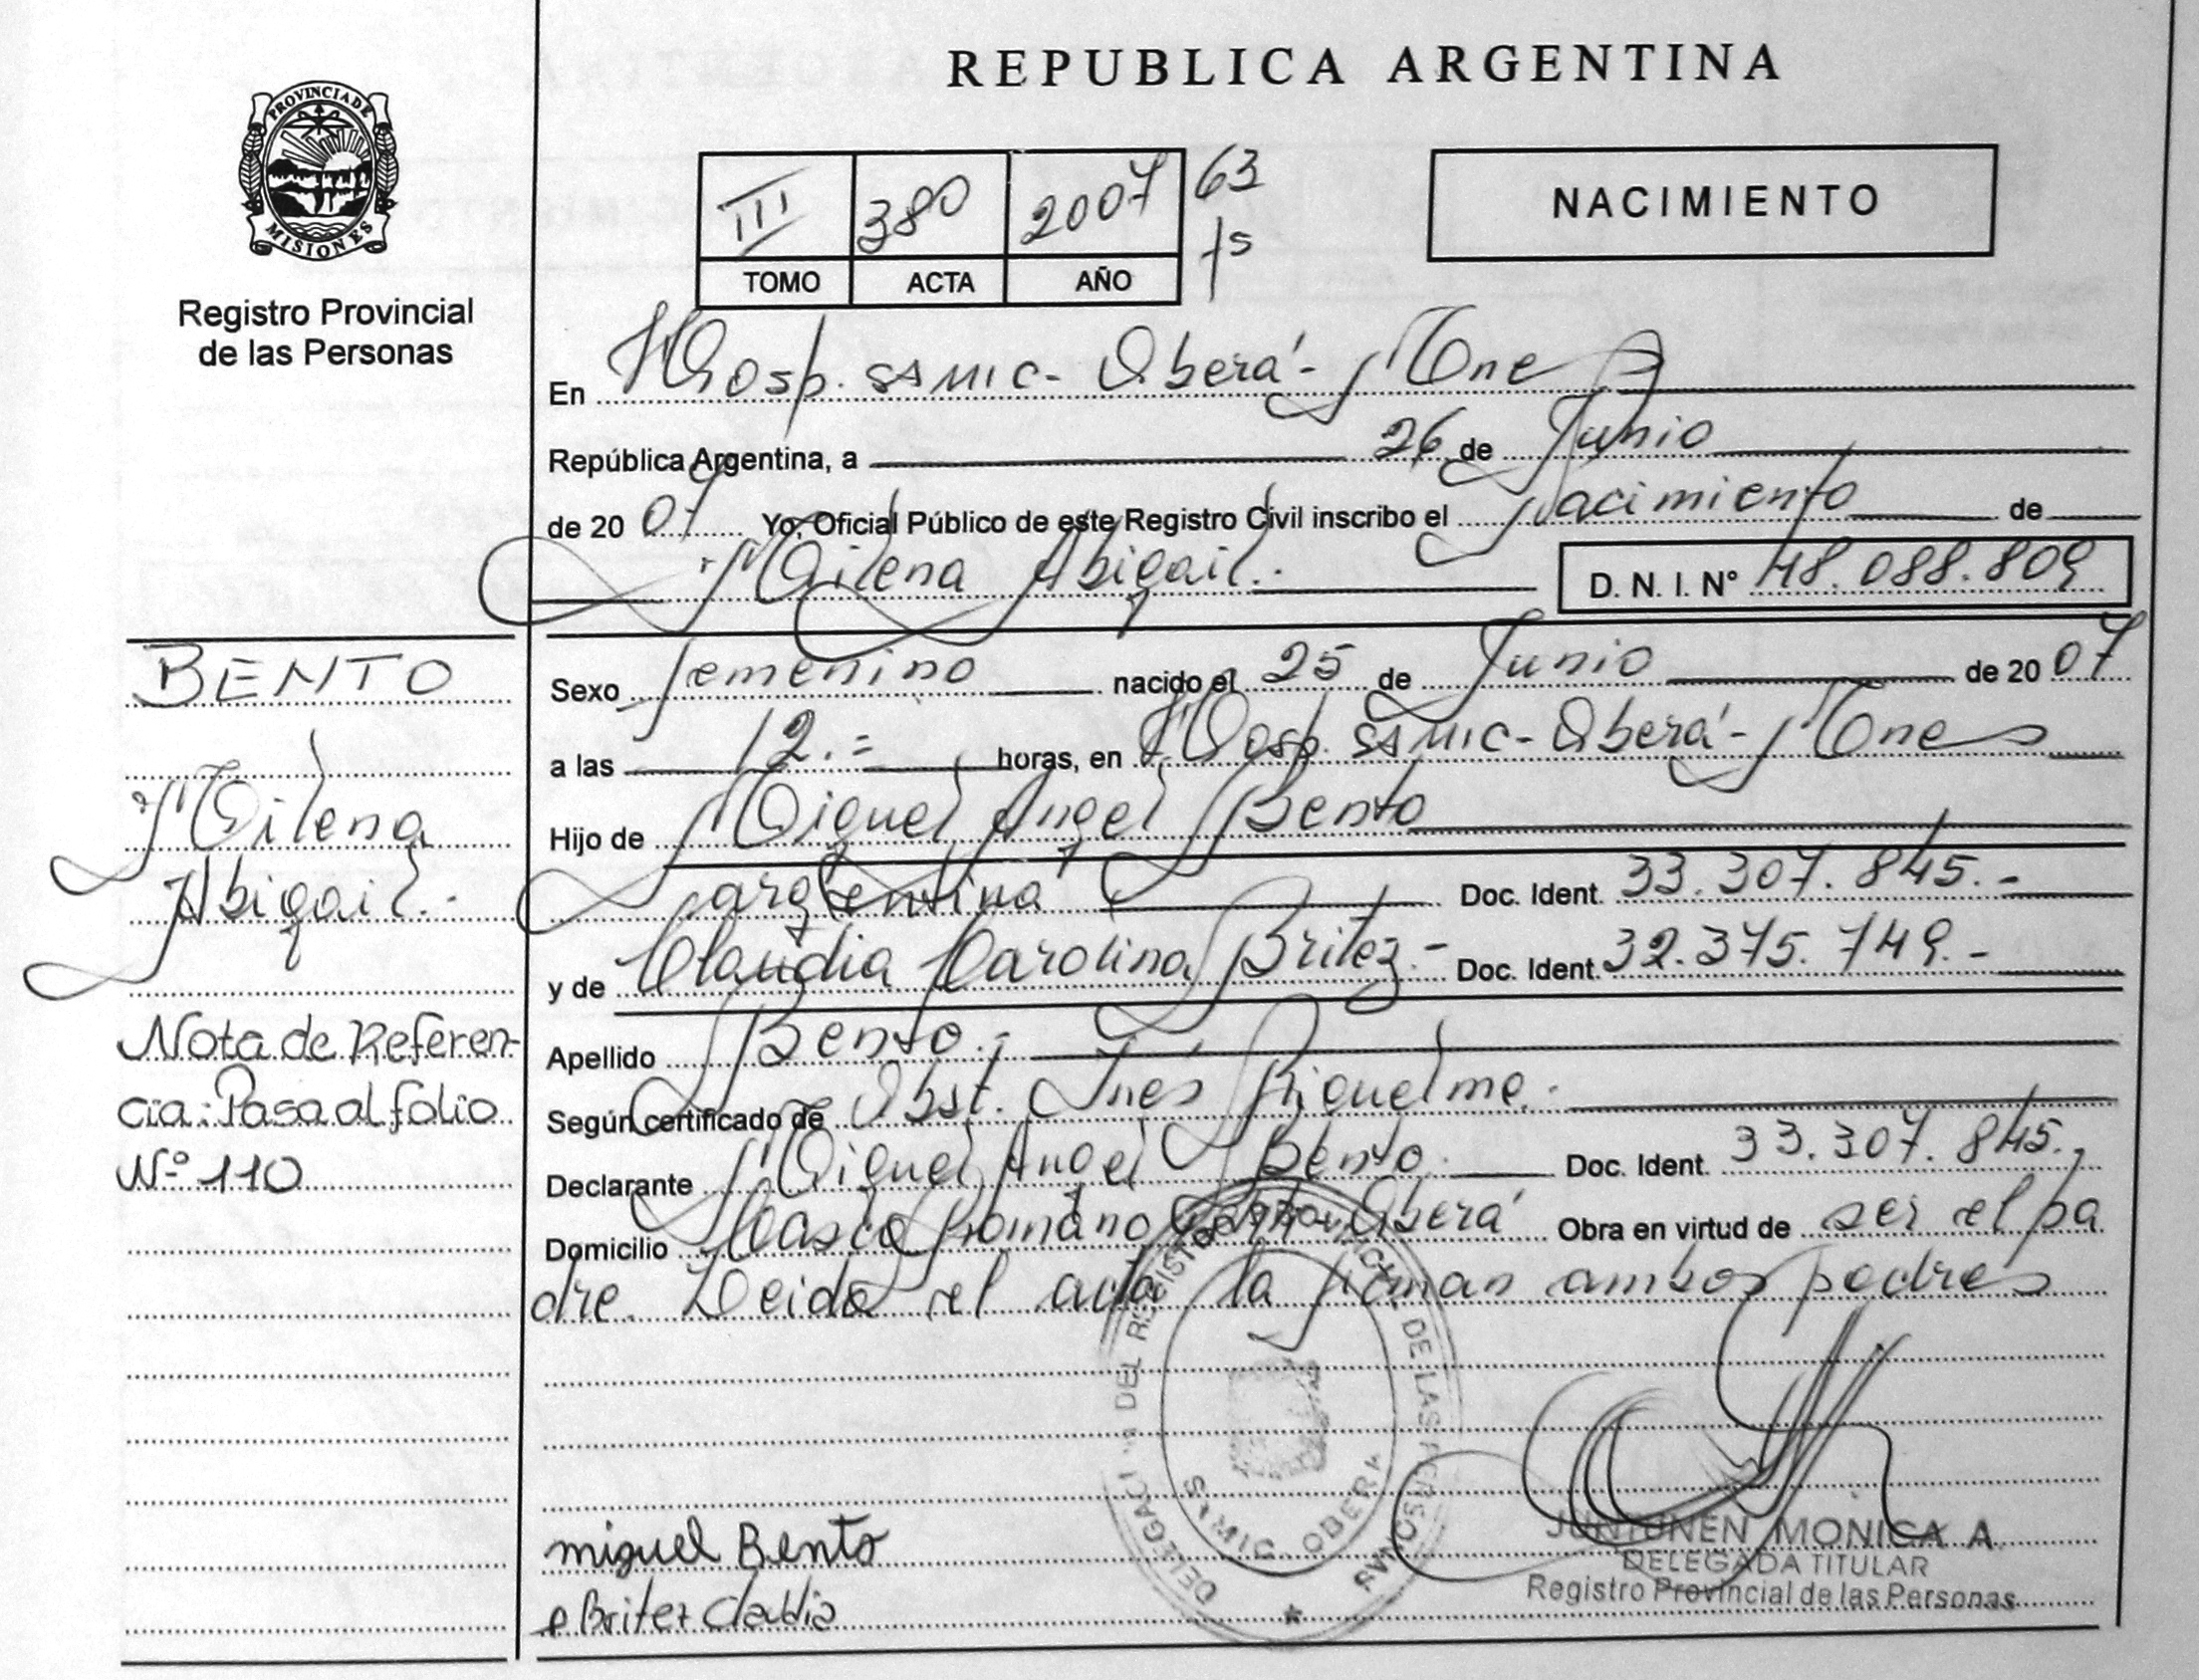 REPUBLICA ARGENTINA
PROVINCIA DE
MISIONES
Registro Provincial
de las Personas
III 380 2007 63
TOMO ACTA AÑO fs
NACIMIENTO
En Hosp. SAMIC- Oberá- Mnes
República Argentina, a 26 de Junio
de 20 07 Yo, Oficial Público de este Registro Civil inscribo el Nacimiento de
Milena Abigail.- D. N. I. Nº 48.088.809
BENTO
Milena
Abigail.-
Nota de Referen-
cia: Pasa al folio
Nº 110
Sexo femenino nacido el 25 de Junio de 20 07
a las 12.= horas, en Hosp. SAMIC- Oberá- Mnes
Hijo de Miguel Angel Bento
argentina Doc. Ident. 33.307.845.-
y de Claudia Carolina Britez.- Doc. Ident. 32.375.749.-
Apellido Bento.-
Según certificado de Obst. Inés Riquelme.-
Declarante Miguel Angel Bento. Doc. Ident. 33.307.845.-
Domicilio Romano Oberá Obra en virtud de ser el pa
dre. Leida el acta la firman ambos padres
DEL REGISTRO DE LAS PERSONAS
OBERA
miguel Bento
Britez Claudia
JUNTUNEN MONICA A
DELEGADA TITULAR
Registro Provincial de las Personas